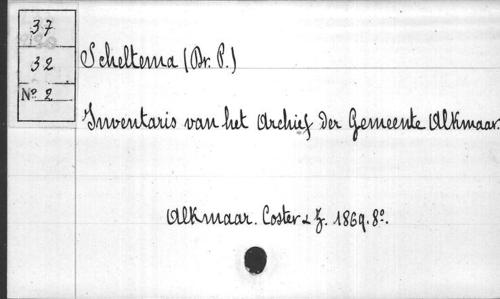 37
32
No. 2
Scheltema (Dr. P.)
Inventaris van het Archief der Gemeente Alkmaar.
Alkmaar. Coster & Z. 1869. 8o.